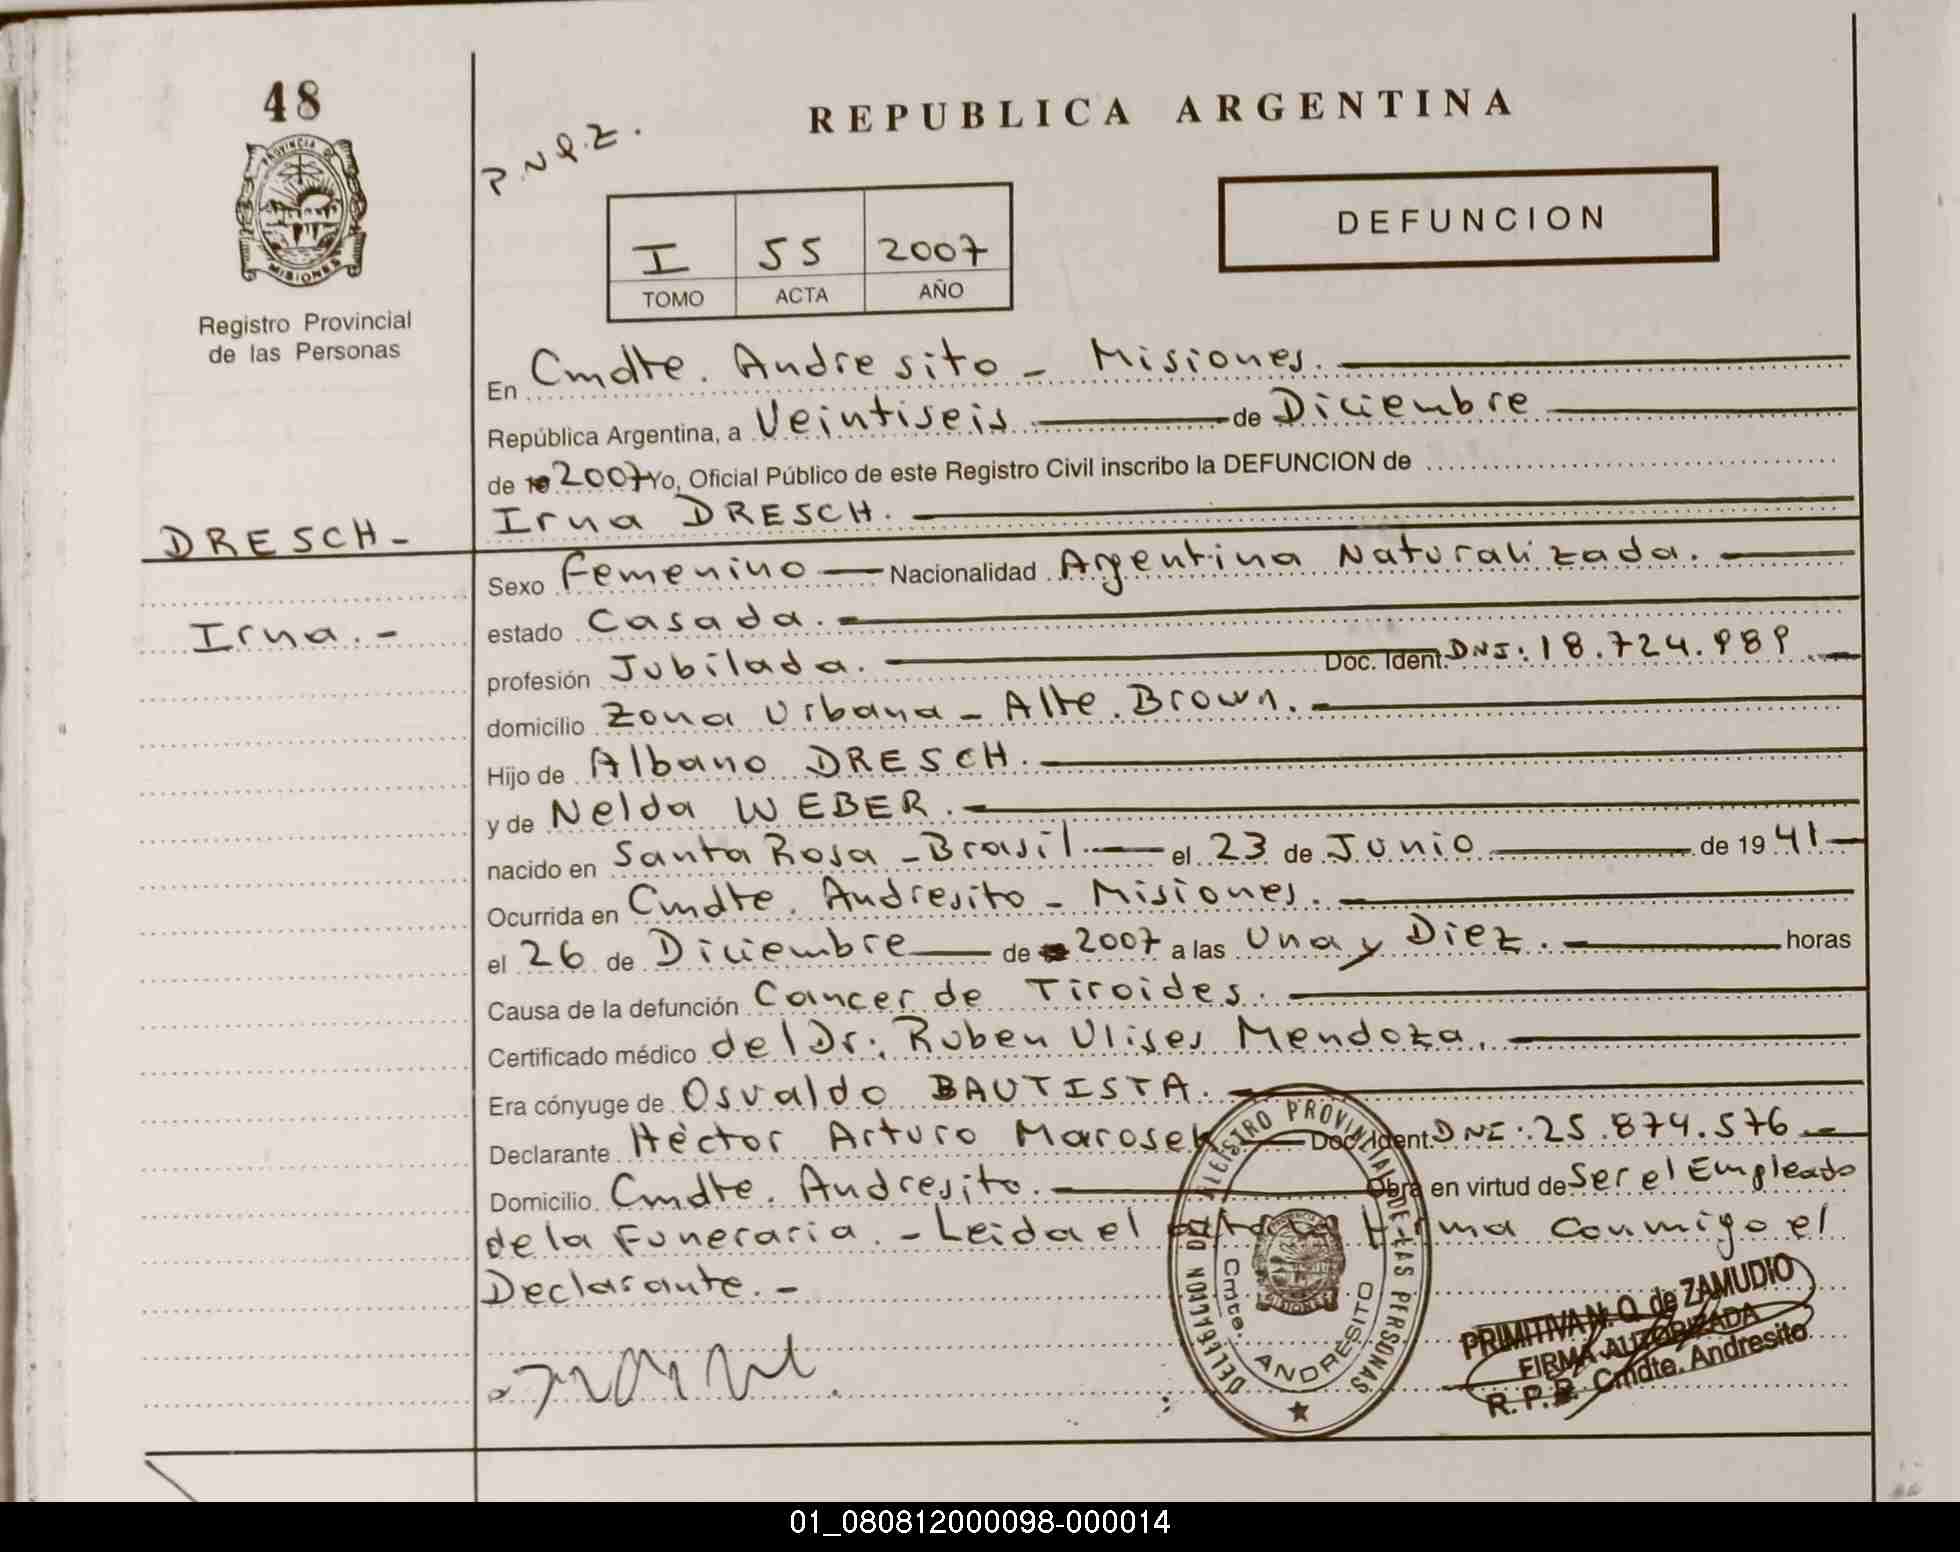 48
PROVINCIA DE
MISIONES
Registro Provincial
de las Personas
REPUBLICA ARGENTINA
DEFUNCION
I 55 2007
TOMO ACTA AÑO
En Cmdte. Andresito - Misiones.
República Argentina, a Veintiseis de Diciembre
de 2007 Yo, Oficial Público de este Registro Civil inscribo la DEFUNCION de
DRESCH -
Irna DRESCH.
Irna. -
Sexo Femenino Nacionalidad Argentina Naturalizada. -
estado Casada.
profesión Jubilada. Doc. Ident. DNI: 18.724.989. -
domicilio Zona Urbana - Alte. Brown.
Hijo de Albano DRESCH.
y de Nelda WEBER.
nacido en Santa Rosa - Brasil el 23 de Junio de 1941
Ocurrida en Cmdte. Andresito - Misiones.
el 26 de Diciembre de 2007 a las Una y Diez. horas
Causa de la defunción Cancer de Tiroides.
Certificado médico del Dr.: Ruben Ulises Mendoza.
Era cónyuge de Osvaldo BAUTISTA.
Declarante Héctor Arturo Marosek Doc. Ident. DNI: 25.874.576. -
Domicilio Cmdte. Andresito. Obra en virtud de Ser el Empleado
de la Funeraria. - Leida el acta la firma conmigo el
Declarante. -
DELEGACION DEL REGISTRO PROVINCIAL DE LAS PERSONAS
Cmte. ANDRESITO
PRIMITIVA N. O. de ZAMUDIO
FIRMA AUTORIZADA
R. P. P. Cmdte. Andresito
01_080812000098-000014